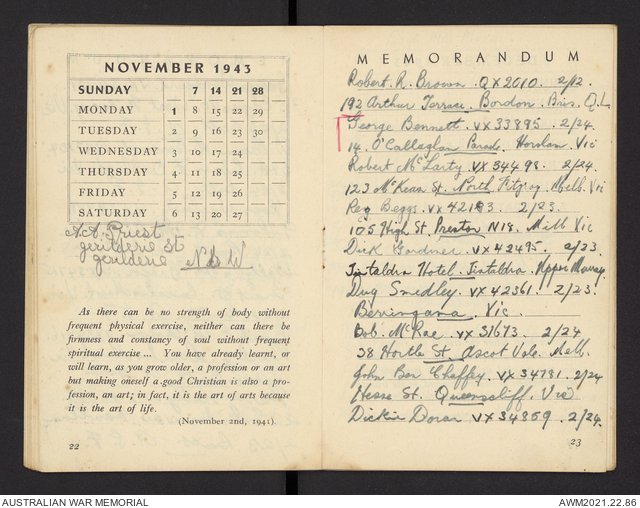 NOVEMBER 1943
SUNDAY 7 14 21 28
MONDAY 1 8 15 22 29
TUESDAY 2 9 16 23 30
WEDNESDAY 3 10 17 24
THURSDAY 4 11 18 25
FRIDAY 5 12 19 26
SATURDAY 6 13 20 27
Priest
jerilderie St
jerilderie N.S.W
As there can be no strength of body without
frequent physical exercise, neither can there be
firmness and constancy of soul without frequent
spiritual exercise ... You have already learnt, or
will learn, as you grow older, a profession or an art
but making oneself a good Christian is also a pro-
fession, an art; in fact, it is the art of arts because
it is the art of life.
(November 2nd, 1941).
22
MEMORANDUM
Robert. R. Brown. QX2010. 2/12.
192 Arthur Terrace. Bordon. Bris. Q.L.
George Bennett. VX33895. 2/24.
14. O'Callaghan Parade. Vic
Robert McLarty VX34498. 2/24.
123 McKean St. North Fitzroy. Melb. Vic
Reg Beggs. VX42183. 2/23.
105 High St. Preston N18. Melb Vic
Dick Gardner. VX42495. 2/23.
Tintaldra Hotel. Tintaldra. Upper Murray.
Dug Smedley. VX42361. 2/23.
Berringama. Vic.
Bob. McRae. VX31673. 2/24
38 St. Ascot Vale. Melb.
John Ben Chaffey. VX34781. 2/24
Hesse St. Queenscliff. Vic
Dickie Doran VX34859. 2/24.
23
AUSTRALIAN WAR MEMORIAL
AWM2021.22.86